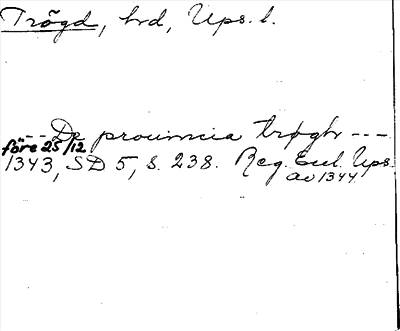 Trögd, hrd, Ups. l.
--- De prouincia trøghr ---
före 25/12
1343, SD 5, s. 238. Reg. Eccl. Ups.
av 1344